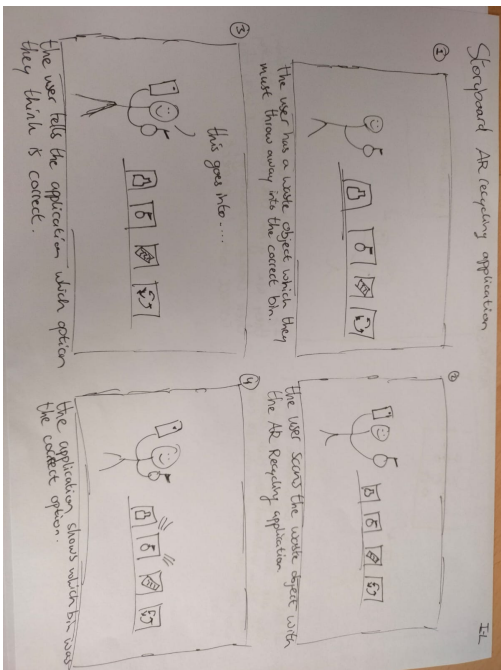 Storyboard AR recycling application
①
the user has a waste object which they
must throw away into the correct bin.
②
the user scans the waste object with
the AR Recycling application
③
this goes into....
the user tells the application which option
they think is correct.
④
the application shows which bin was
the correct option.